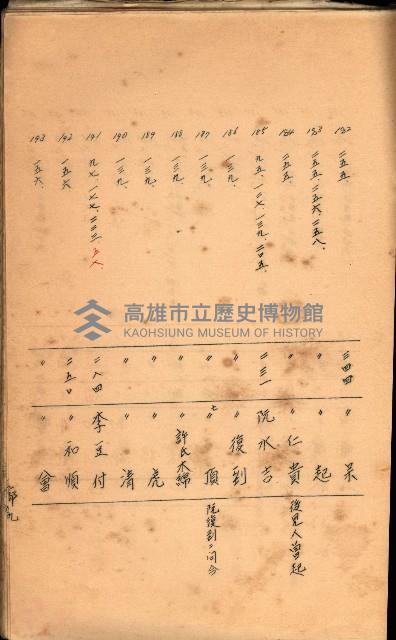 182 二五五、 三四四 〃 呆
183 二五五、二五六、二五八、 〃 〃 起
184 二五五、 〃 〃 仁貴 後見人曾起
185 九五、一二七、一三九、二〇五、 二三一 阮水吉
186 一三九、 〃 〃 復到
187 一三九、 〃 〃 頂 阮復到ノ同居
188 一三九、 〃 許氏木綿
189 一三九、 〃 〃 虎
190 一三九、 〃 〃 清
191 九七、一七七、二二三、 二八四 李豆付
192 一五六 二五〇 〃 和順
193 一五六、 〃 〃 會
高雄市立歷史博物館
KAOHSIUNG MUSEUM OF HISTORY